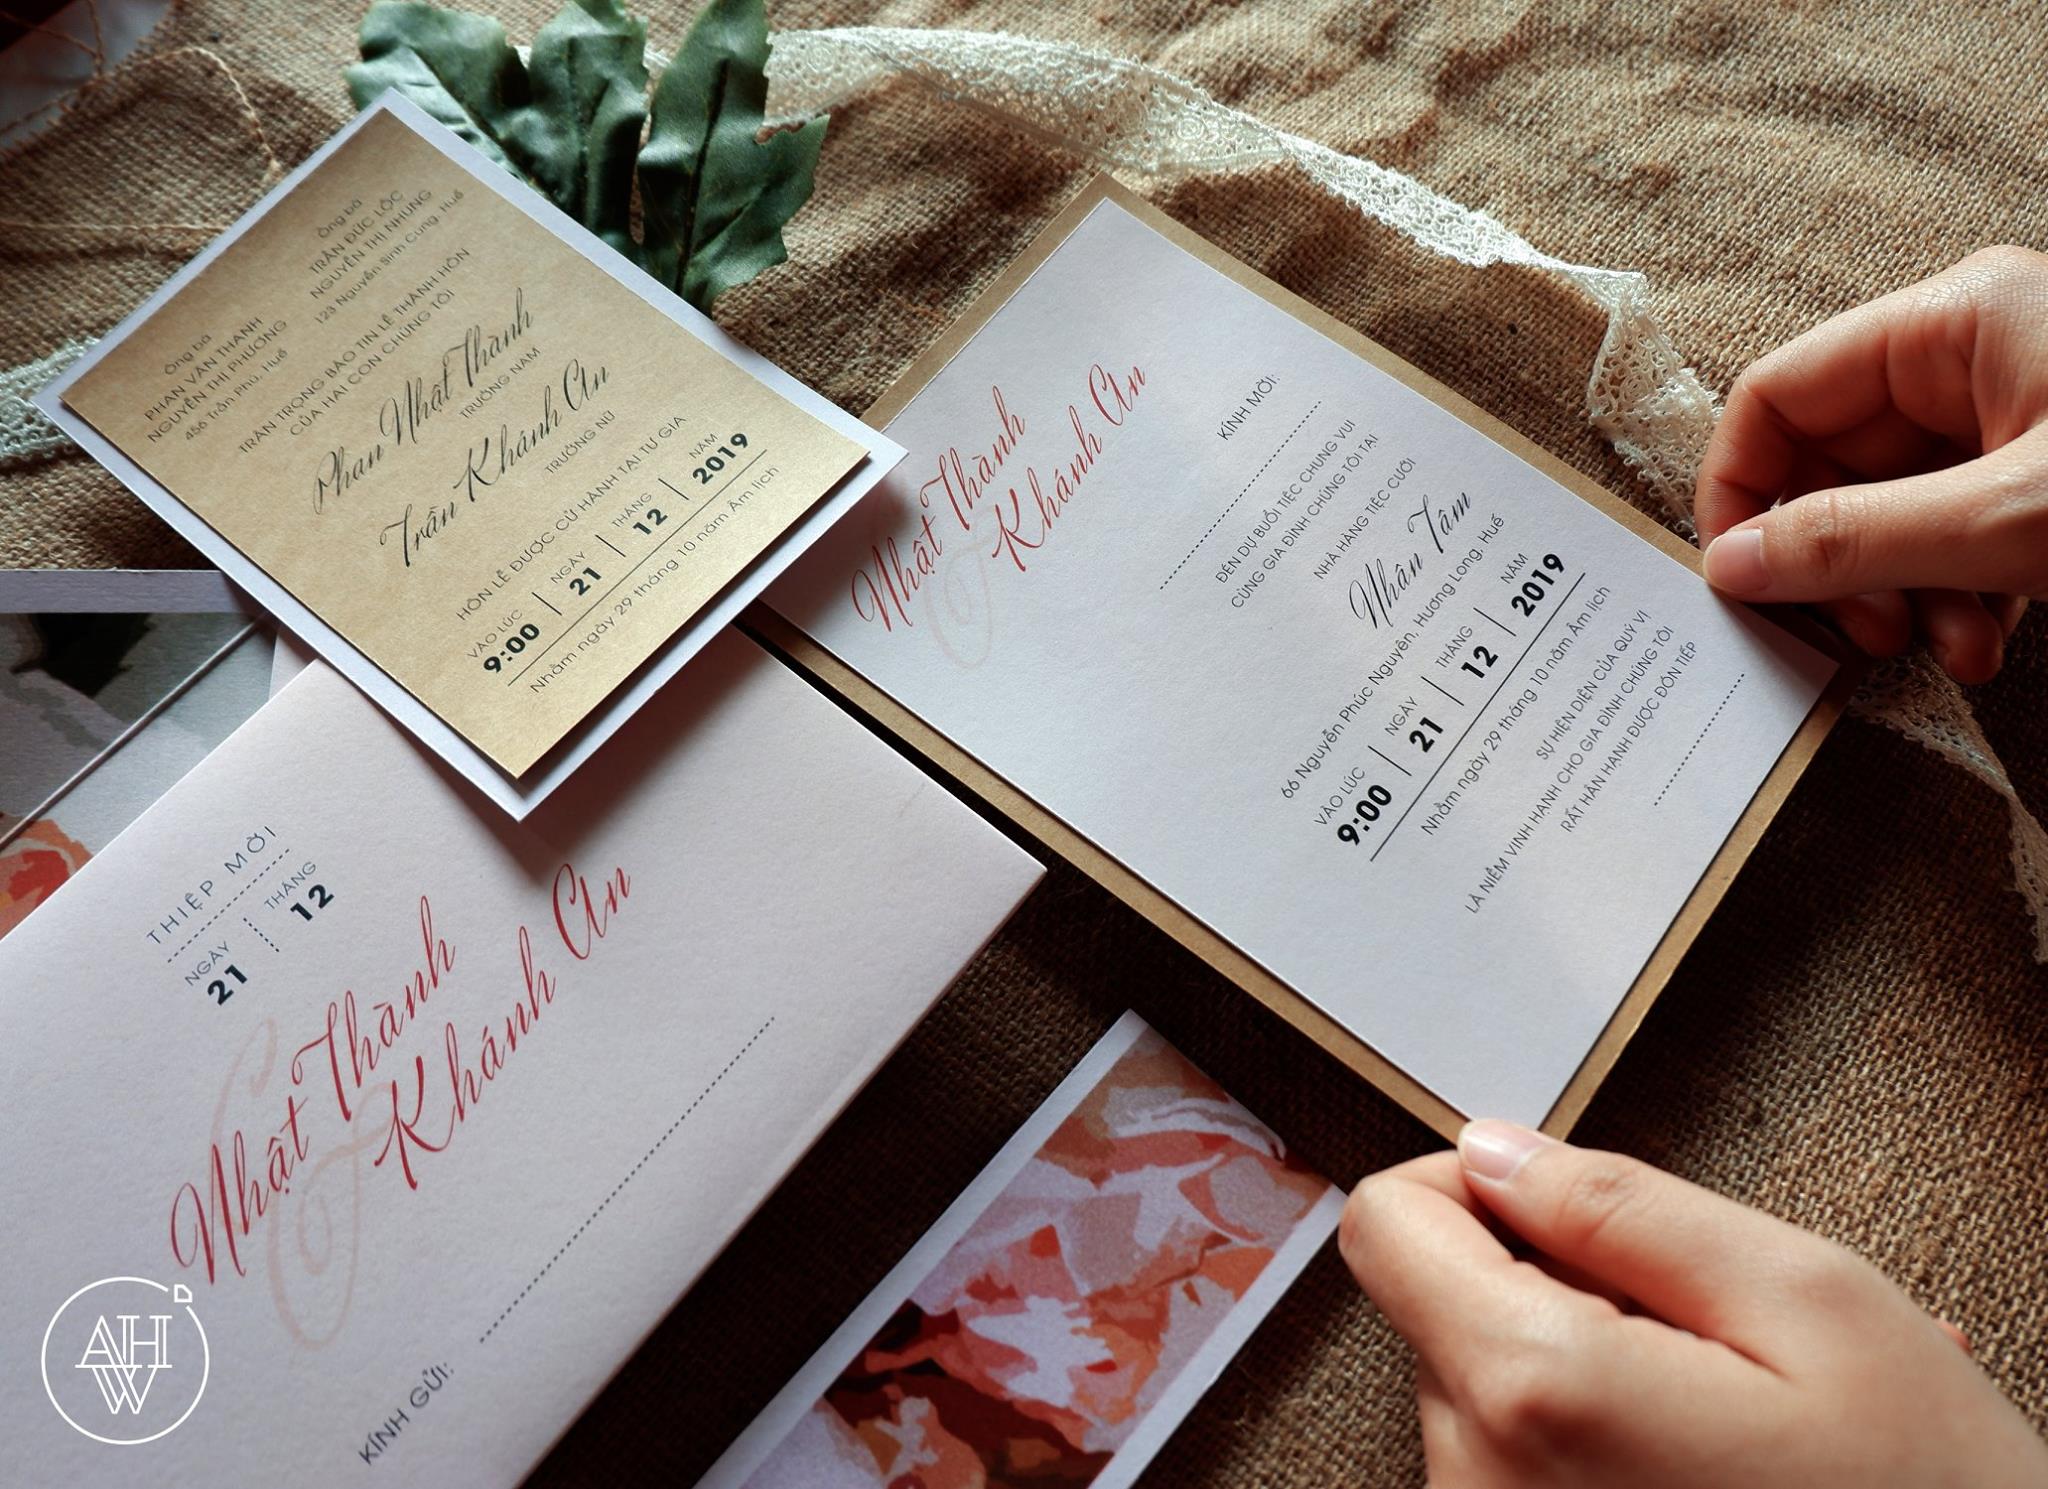 Ông bà
PHAN VĂN THANH
NGUYỄN THỊ PHƯƠNG
456 Trần Phú, Huế
Ông bà
TRẦN ĐỨC LỘC
NGUYỄN THỊ NHUNG
123 Nguyễn Sinh Cung, Huế
TRÂN TRỌNG BÁO TIN LỄ THÀNH HÔN
CỦA HAI CON CHÚNG TÔI
Phan Nhật Thành
TRƯỞNG NAM
Trần Khánh An
TRƯỞNG NỮ
HÔN LỄ ĐƯỢC CỬ HÀNH TẠI TƯ GIA
VÀO LÚC NGÀY THÁNG NĂM
9:00 21 12 2019
Nhằm ngày 29 tháng 10 năm Âm lịch
Nhật Thành
Khánh An
KÍNH MỜI:
ĐẾN DỰ BUỔI TIỆC CHUNG VUI
CÙNG GIA ĐÌNH CHÚNG TÔI TẠI
NHÀ HÀNG TIỆC CƯỚI
Nhân Tâm
66 Nguyễn Phúc Nguyên, Hương Long, Huế
VÀO LÚC NGÀY THÁNG NĂM
9:00 21 12 2019
Nhằm ngày 29 tháng 10 năm Âm lịch
SỰ HIỆN DIỆN CỦA QUÝ VỊ
LÀ NIỀM VINH HẠNH CHO GIA ĐÌNH CHÚNG TÔI
RẤT HÂN HẠNH ĐƯỢC ĐÓN TIẾP
THIỆP MỜI
NGÀY THÁNG
21 12
Nhật Thành
Khánh An
KÍNH GỬI:
AH
W